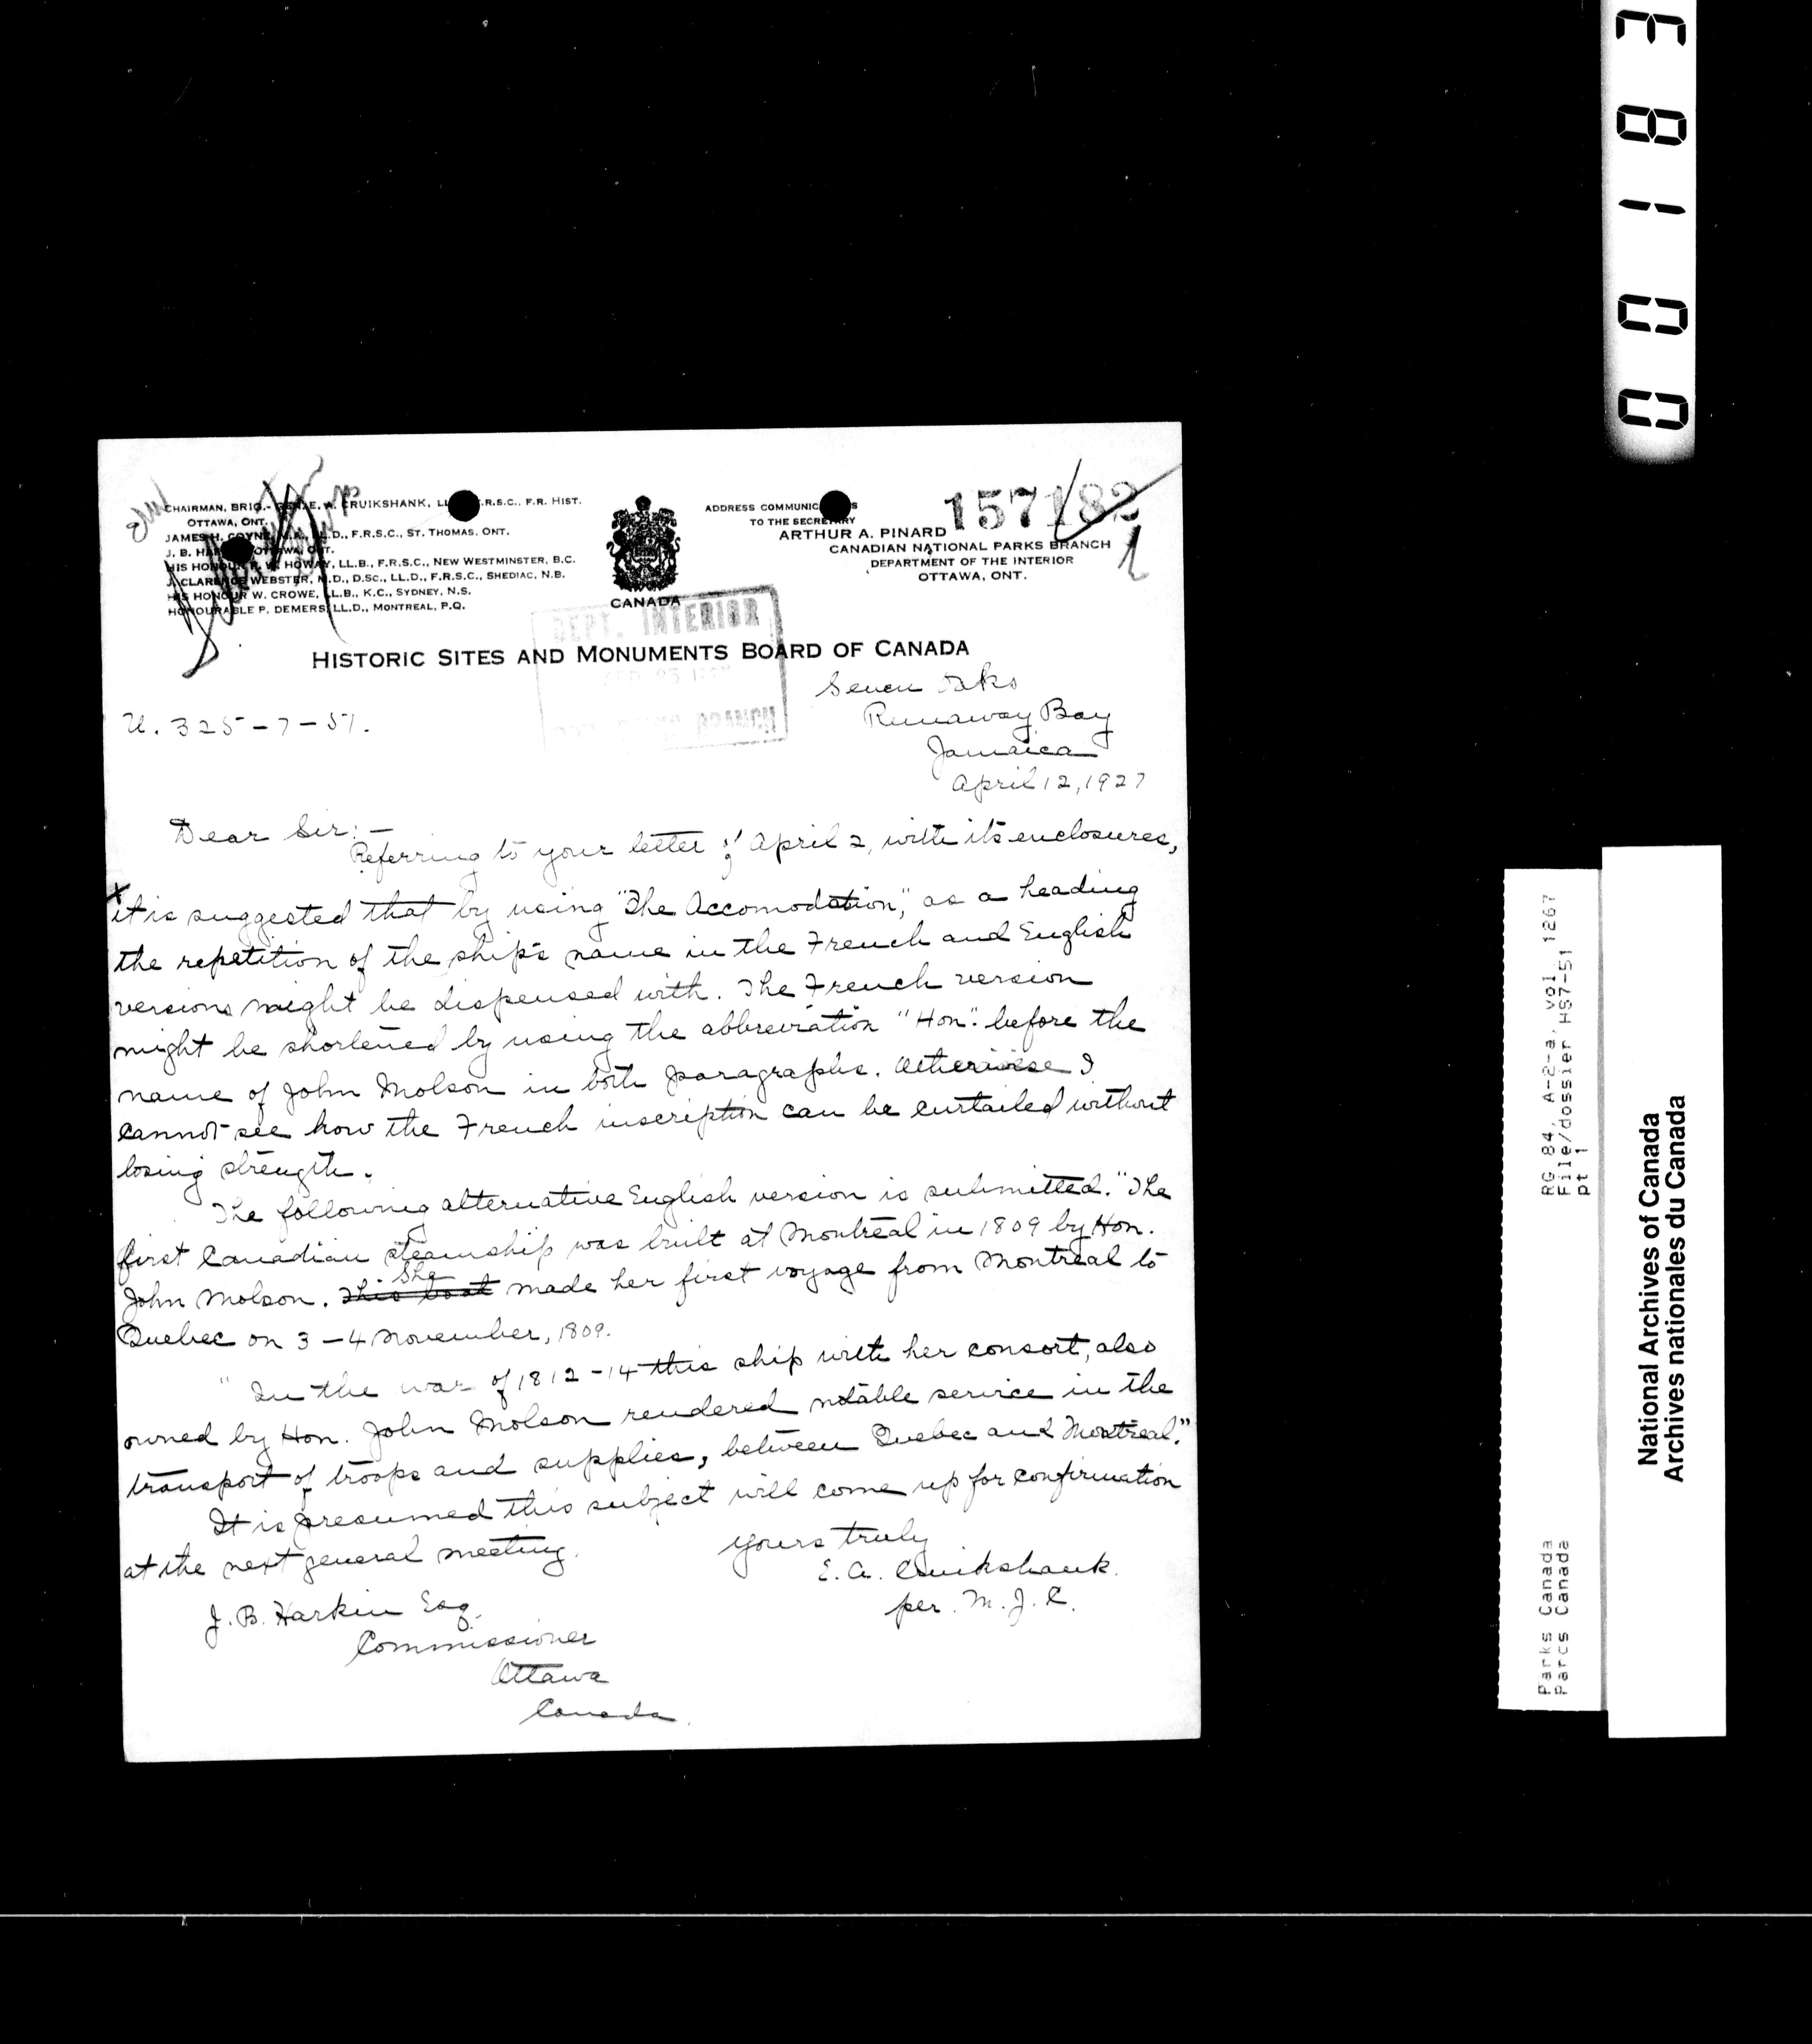 CHAIRMAN, BRIG.- E. A. CRUIKSHANK, F.R.S.C., F.R. HIST.
OTTAWA, ONT.
JAMES H. COYNE, M.A., LL.D., F.R.S.C., ST. THOMAS, ONT.
J. B. OTTAWA, ONT.
HIS HONOUR F. W. HOWAY, LL.B., F.R.S.C., NEW WESTMINSTER, B.C.
J. CLARENCE WEBSTER, M.D., D.SC., LL.D., F.R.S.C., SHEDIAC, N.B.
HIS HONOUR W. CROWE, LL.B., K.C., SYDNEY, N.S.
HONOURABLE P. DEMERS, LL.D., MONTREAL, P.Q.
CANADA
ADDRESS COMMUNIC S
TO THE SECRETARY
ARTHUR A. PINARD
CANADIAN NATIONAL PARKS BRANCH
DEPARTMENT OF THE INTERIOR
OTTAWA, ONT.
157182
1
DEPT. INTERIOR
BRANCH
HISTORIC SITES AND MONUMENTS BOARD OF CANADA
U. 325-7-51.
Seven Oaks
Runaway Bay
Jamaica
April 12, 1927
Dear Sir:—
Referring to your letter of April 2, with its enclosures,
x
it is suggested that by using "The Accomodation", as a heading
the repetition of the ship's name in the French and English
versions might be dispensed with. The French version
might be shortened by using the abbreviation "Hon". before the
name of John Molson in both paragraphs. Otherwise I
cannot see how the French inscription can be curtailed without
losing strength.
The following alternative English version is submitted. "The
first Canadian steamship was built at Montreal in 1809 by Hon.
John Molson. This boat She made her first voyage from Montreal to
Quebec on 3 – 4 November, 1809.
"In the war of 1812-14 this ship with her consort, also
owned by Hon. John Molson rendered notable service in the
transport of troops and supplies, between Quebec and Montreal."
It is presumed this subject will come up for confirmation
at the next general meeting.
Yours truly
E. A. Cruikshank.
per. M. J. C.
J. B. Harkin Esq.
Commissioner
Ottawa
Canada.
00183
RG 84, A-2-a, vol. 1267
File/dossier HS7-51
pt 1
Parks Canada
Parcs Canada
National Archives of Canada
Archives nationales du Canada